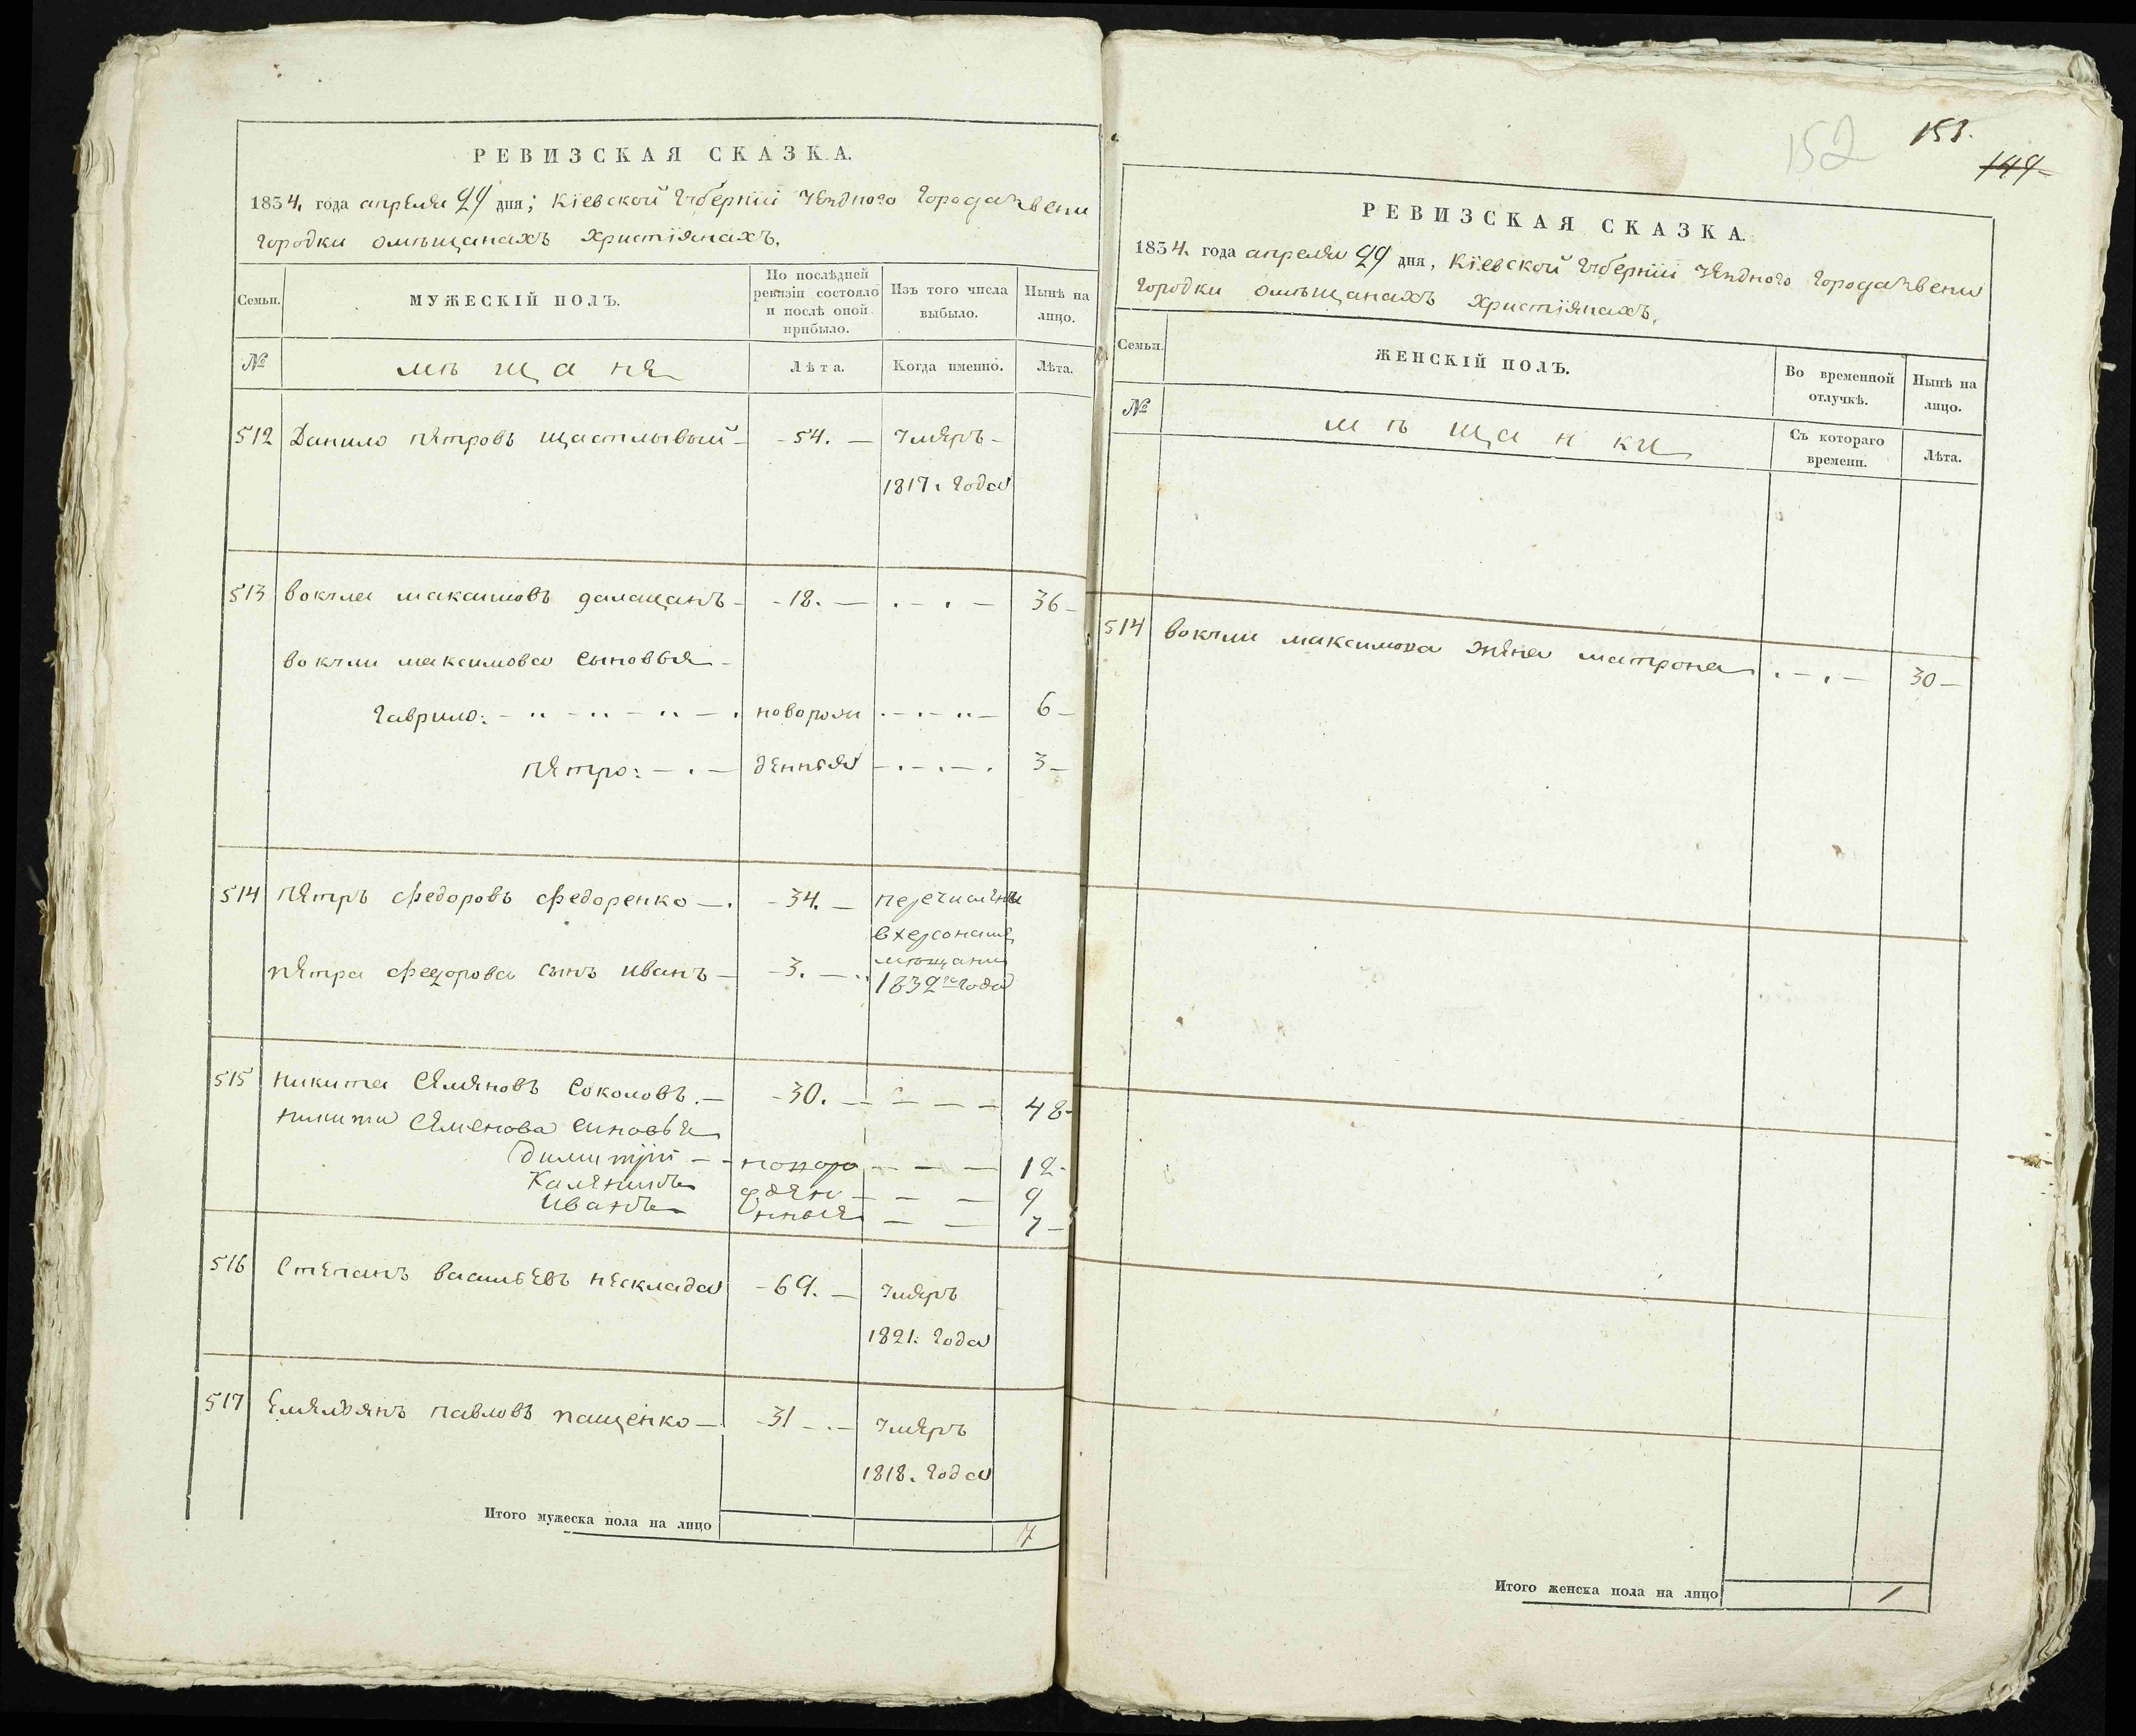 РЕВИЗСКАЯ СКАЗКА.
1834. года апреля 29 дня; Кіевской Губерніи уезднаго города Звени
городки омѣщанахъ христіянахъ,
Семьи.
МУЖЕСКІЙ ПОЛЪ.
По послѣдней ревизіи состояло и послѣ оной прибыло.
Изъ того числа выбыло.
Нынѣ на лицо.
№
мѣщане
Лѣта.
Когда именно.
Лѣта.
512 Данило Петровъ Щастливый - 54. умеръ
1817. года
513 максимовъ - 18. 36
максимова сыновья
Гаврило: новорож 6
Петро: денныя 3
514 Петръ Федоровъ Федоренко - 34. перечисленъ
в херсонские
Петра Федорова сынъ Иванъ - 3. мещани
1832го года
515 Никита Семеновъ Соколовъ. - 30. 48
Никити Семенова синовья
Димитрій 12
Иванъ нныя 7
516 Степанъ Васильевъ Нескладa - 69. умеръ
1821. года
517 Емельянъ Павловъ Пащенко - 31 умеръ
1818. года
Итого мужеска пола на лицо 7
152
153.
149
РЕВИЗСКАЯ СКАЗКА.
1834. года апреля 29 дня, Кіевской Губерніи уезднаго города Звени
городки омѣщанахъ христіянахъ,
Семьи.
ЖЕНСКІЙ ПОЛЪ.
Во временной отлучкѣ.
Нынѣ на лицо.
№
мѣщанки
Съ котораго времени.
Лѣта.
514 максимова жена матрона 30
Итого женска пола на лицо 1